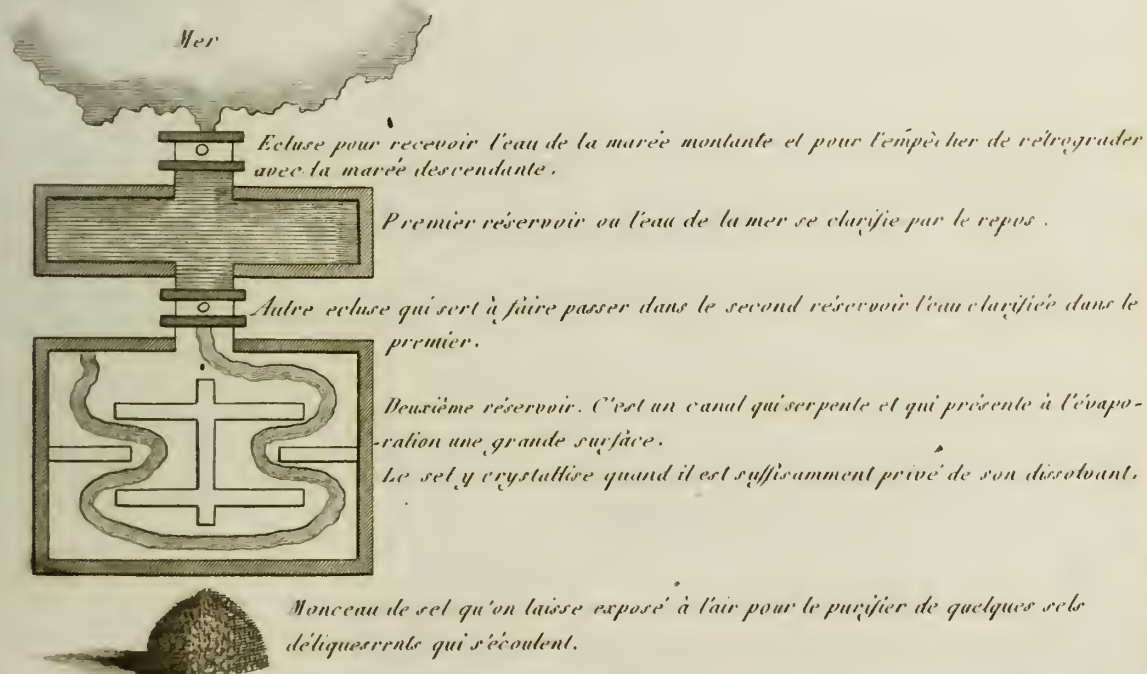 Mer
Ecluse pour recevoir l'eau de la marée montante et pour l'empêcher de rétrograder
avec la marée descendante.
Premier réservoir ou l'eau de la mer se clarifie par le repos.
Autre ecluse qui sert à faire passer dans le second réservoir l'eau clarifiée dans le
premier.
Deuxième réservoir. C'est un canal qui serpente et qui présente à l'évapo-
-ration une grande surface.
Le sel y crystallise quand il est suffisamment privé de son dissolvant.
Monceau de sel qu'on laisse exposé à l'air pour le purifier de quelques sels
déliquesrents qui s'écoulent.